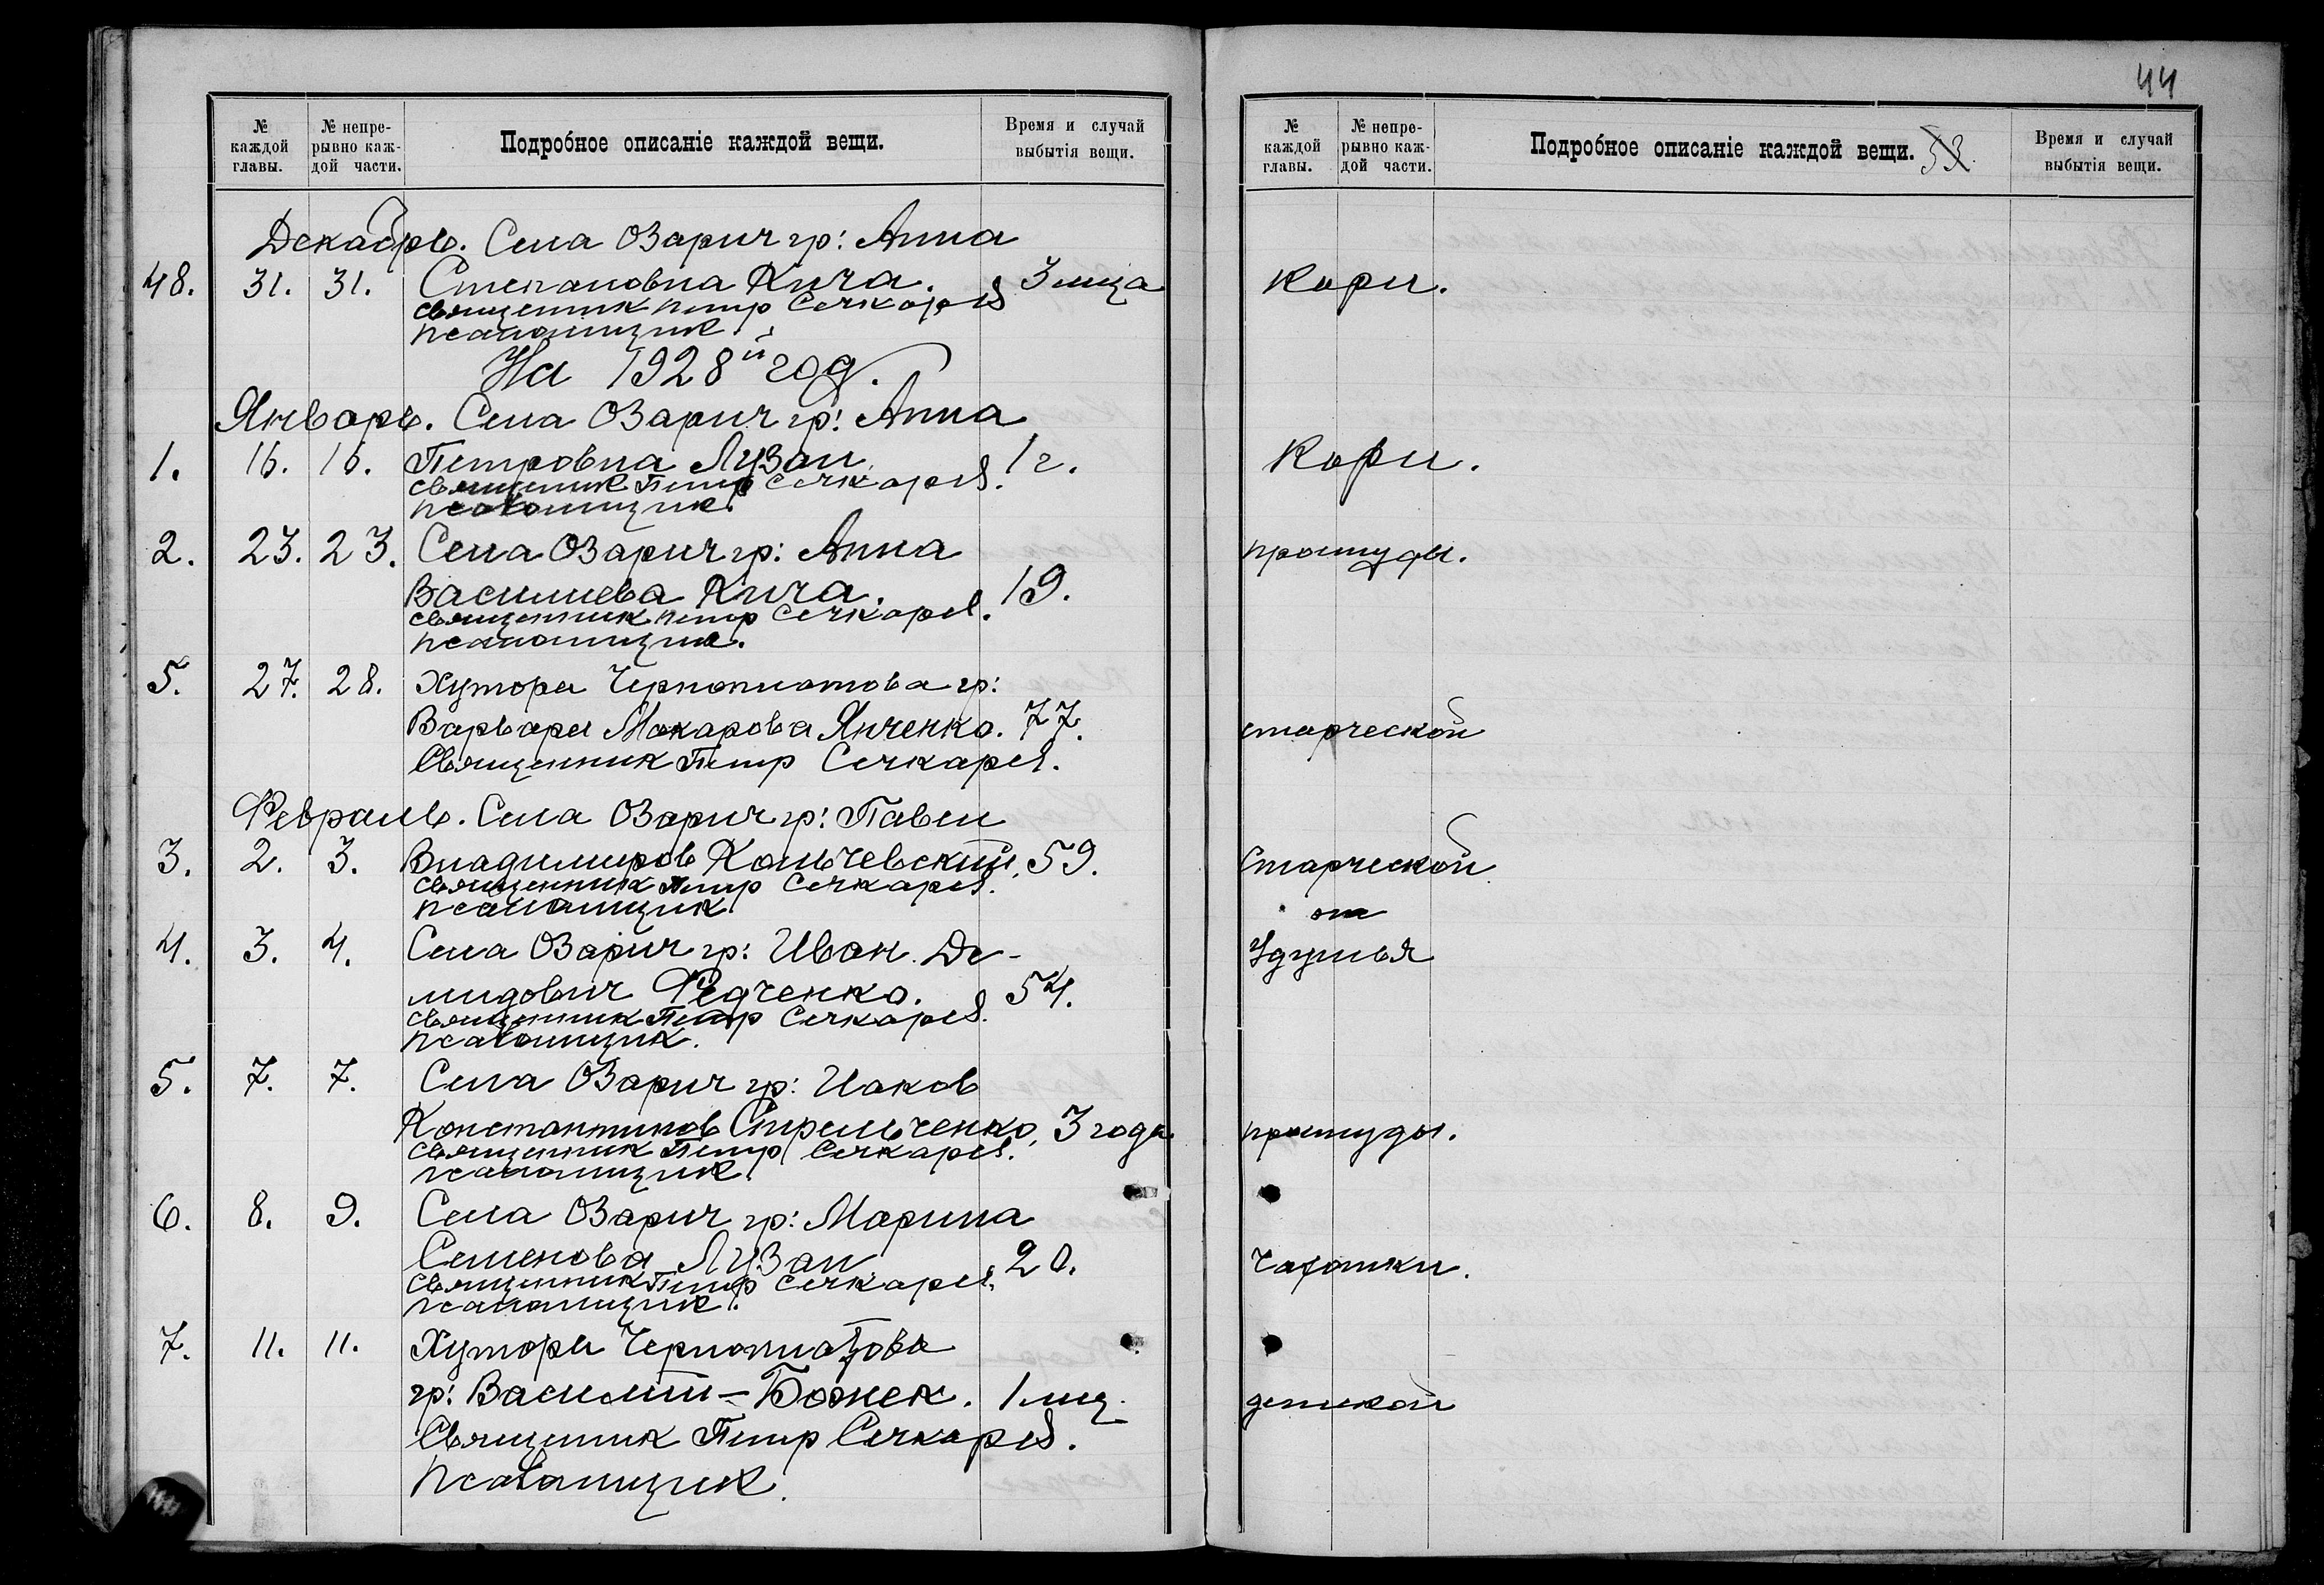 № каждой главы.
№ непре-рывно каж-дой части.
Подробное описаніе каждой вещи.
Время и случай выбытія вещи.
Декабрь. Села Озарич гр: Анна
48. 31. 31. Степановна Кича. 3 мца
священник Петр Сечкарев
псаломщик
На 1928й год.
Январь. Села Озарич гр: Анна
1. 16. 16. Петровна Лузан 1 г.
священик Петр Сечкарев.
псаломщик.
2. 23. 23. Села Озарич гр: Анна
Василиева Кича. 19.
священник Петр Сечкарев.
псаломщик.
5. 27. 28. Хутора Черноплатова гр:
Варвара Макарова Янченко. 77.
Священник Петр Сечкарев.
Февраль. Села Озарич гр: Павел
3. 2. 3. Владимиров Кольчевский. 59.
священник Петр Сечкарев.
псаломщик
4. 3. 4. Села Озарич гр: Иван Де-
мидович Федченко. 54.
священник Петр Сечкарев.
псаломщик.
5. 7. 7. Села Озарич гр: Иаков
Константинов Стрельченко, 3 года
священник Петр Сечкарев.
псаломщик
6. 8. 9. Села Озарич гр: Марина
Семенова Лузан 20.
священник Петр Сечкарев.
псаломщик.
7. 11. 11. Хутора Черноплатова
гр: Василий - Божек. 1 мц.
Священик Петр Сечкарев.
псаломщик.
44
№ каждой главы.
№ непре-рывно каж-дой части.
Подробное описаніе каждой вещи. 53.
Время и случай выбытія вещи.
Кори.
Кори.
простуды.
старческой
Старческой
от
Удушья
простуды.
Чахотки.
детской